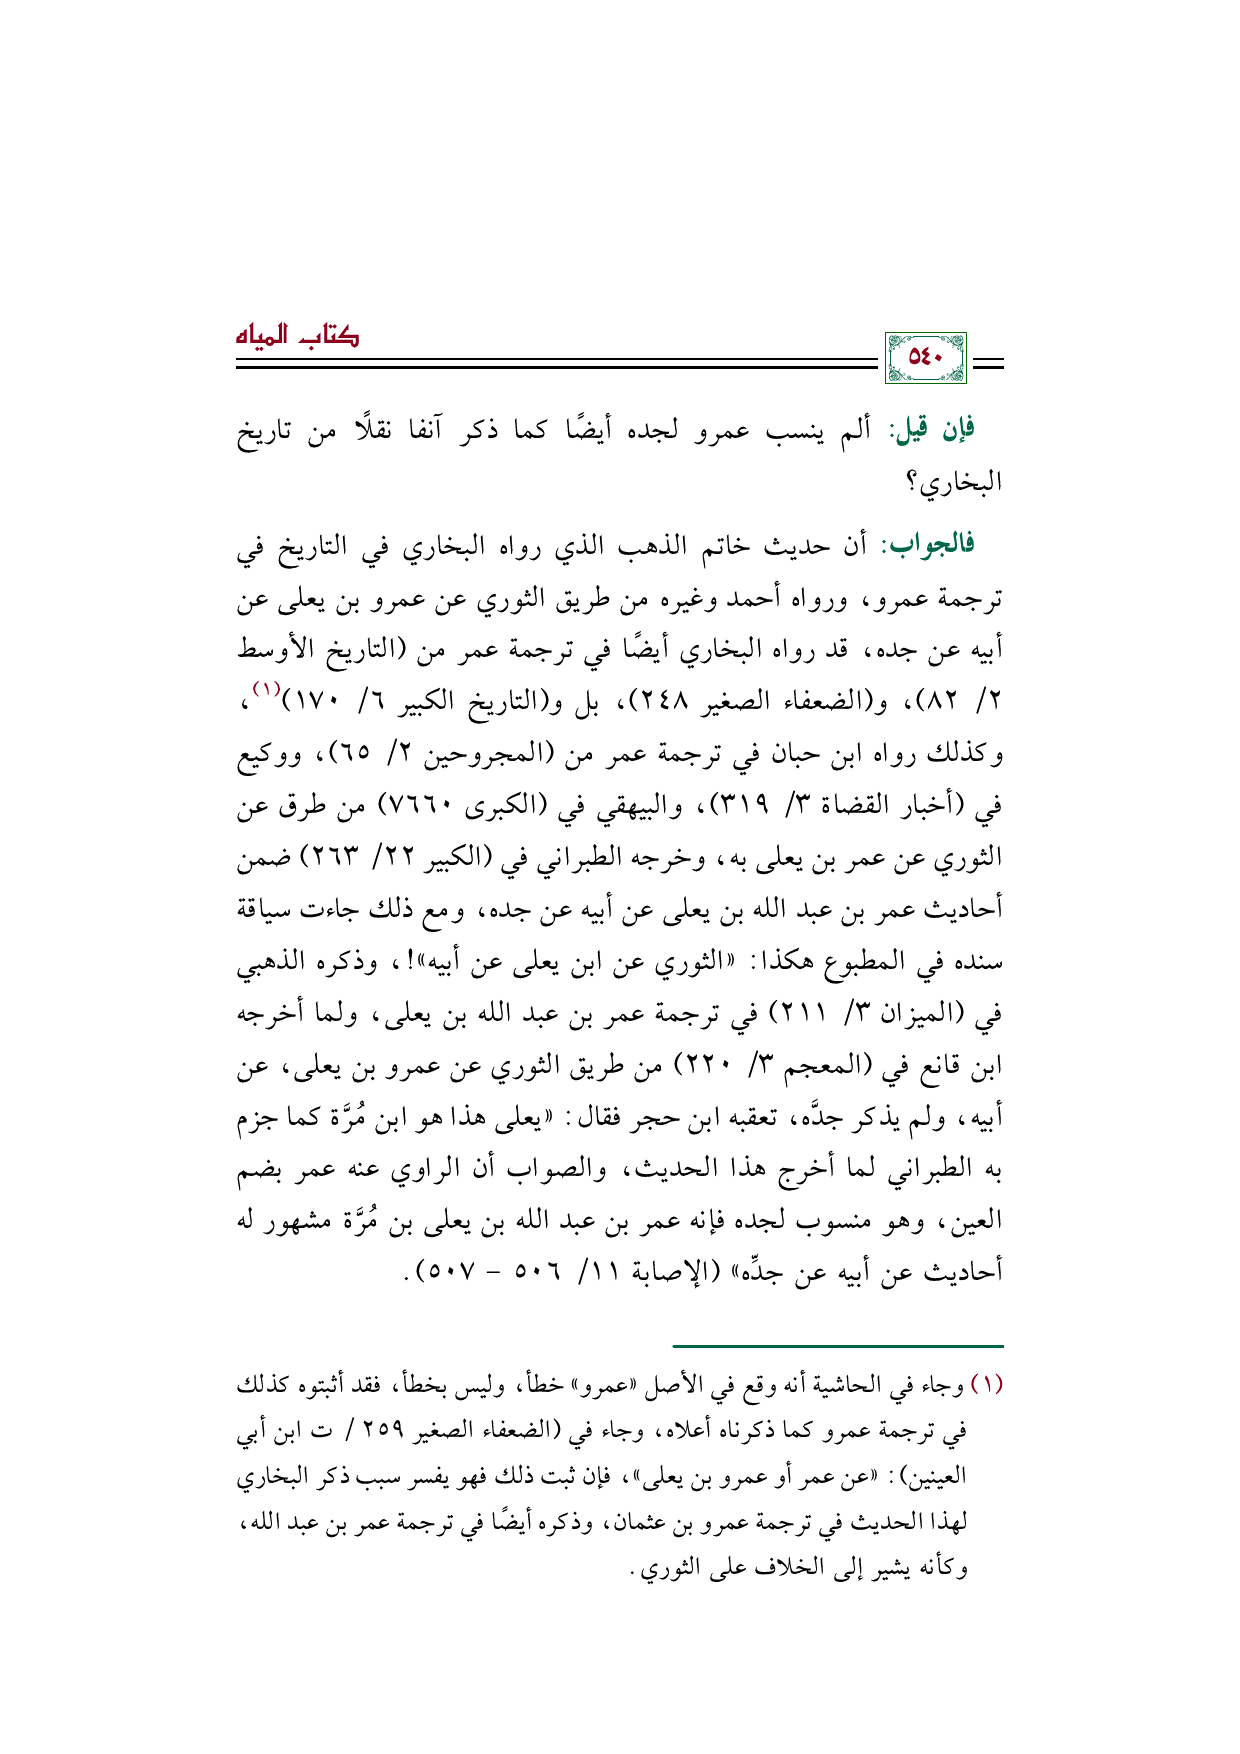 كتاب المياه
٥٤٠
فإن قيل: ألم ينسب عمرو لجده أيضًا كما ذكر آنفا نقلًا من تاريخ
البخاري؟
فالجواب: أن حديث خاتم الذهب الذي رواه البخاري في التاريخ في
ترجمة عمرو، ورواه أحمد وغيره من طريق الثوري عن عمرو بن يعلى عن
أبيه عن جده، قد رواه البخاري أيضًا في ترجمة عمر من (التاريخ الأوسط
٢/ ٨٢)، و(الضعفاء الصغير ٢٤٨)، بل و(التاريخ الكبير ٦/ ١٧٠)(١)،
وكذلك رواه ابن حبان في ترجمة عمر من (المجروحين ٢/ ٦٥)، ووكيع
في (أخبار القضاة ٣/ ٣١٩)، والبيهقي في (الكبرى ٧٦٦٠) من طرق عن
الثوري عن عمر بن يعلى به، وخرجه الطبراني في (الكبير ٢٢/ ٢٦٣) ضمن
أحاديث عمر بن عبد الله بن يعلى عن أبيه عن جده، ومع ذلك جاءت سياقة
سنده في المطبوع هكذا: «الثوري عن ابن يعلى عن أبيه»!، وذكره الذهبي
في (الميزان ٣/ ٢١١) في ترجمة عمر بن عبد الله بن يعلى، ولما أخرجه
ابن قانع في (المعجم ٣/ ٢٢٠) من طريق الثوري عن عمرو بن يعلى، عن
أبيه، ولم يذكر جدَّه، تعقبه ابن حجر فقال: «يعلى هذا هو ابن مُرَّة كما جزم
به الطبراني لما أخرج هذا الحديث، والصواب أن الراوي عنه عمر بضم
العين، وهو منسوب لجده فإنه عمر بن عبد الله بن يعلى بن مُرَّة مشهور له
أحاديث عن أبيه عن جدِّه» (الإصابة ١١/ ٥٠٦ - ٥٠٧).
(١) وجاء في الحاشية أنه وقع في الأصل «عمرو» خطأ، وليس بخطأ، فقد أثبتوه كذلك
في ترجمة عمرو كما ذكرناه أعلاه، وجاء في (الضعفاء الصغير ٢٥٩ / ت ابن أبي
العينين): «عن عمر أو عمرو بن يعلى»، فإن ثبت ذلك فهو يفسر سبب ذكر البخاري
لهذا الحديث في ترجمة عمرو بن عثمان، وذكره أيضًا في ترجمة عمر بن عبد الله،
وكأنه يشير إلى الخلاف على الثوري.